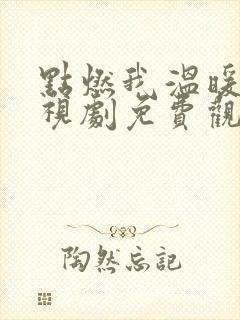 點燃我溫暖
視劇免費觀
陶然忘記